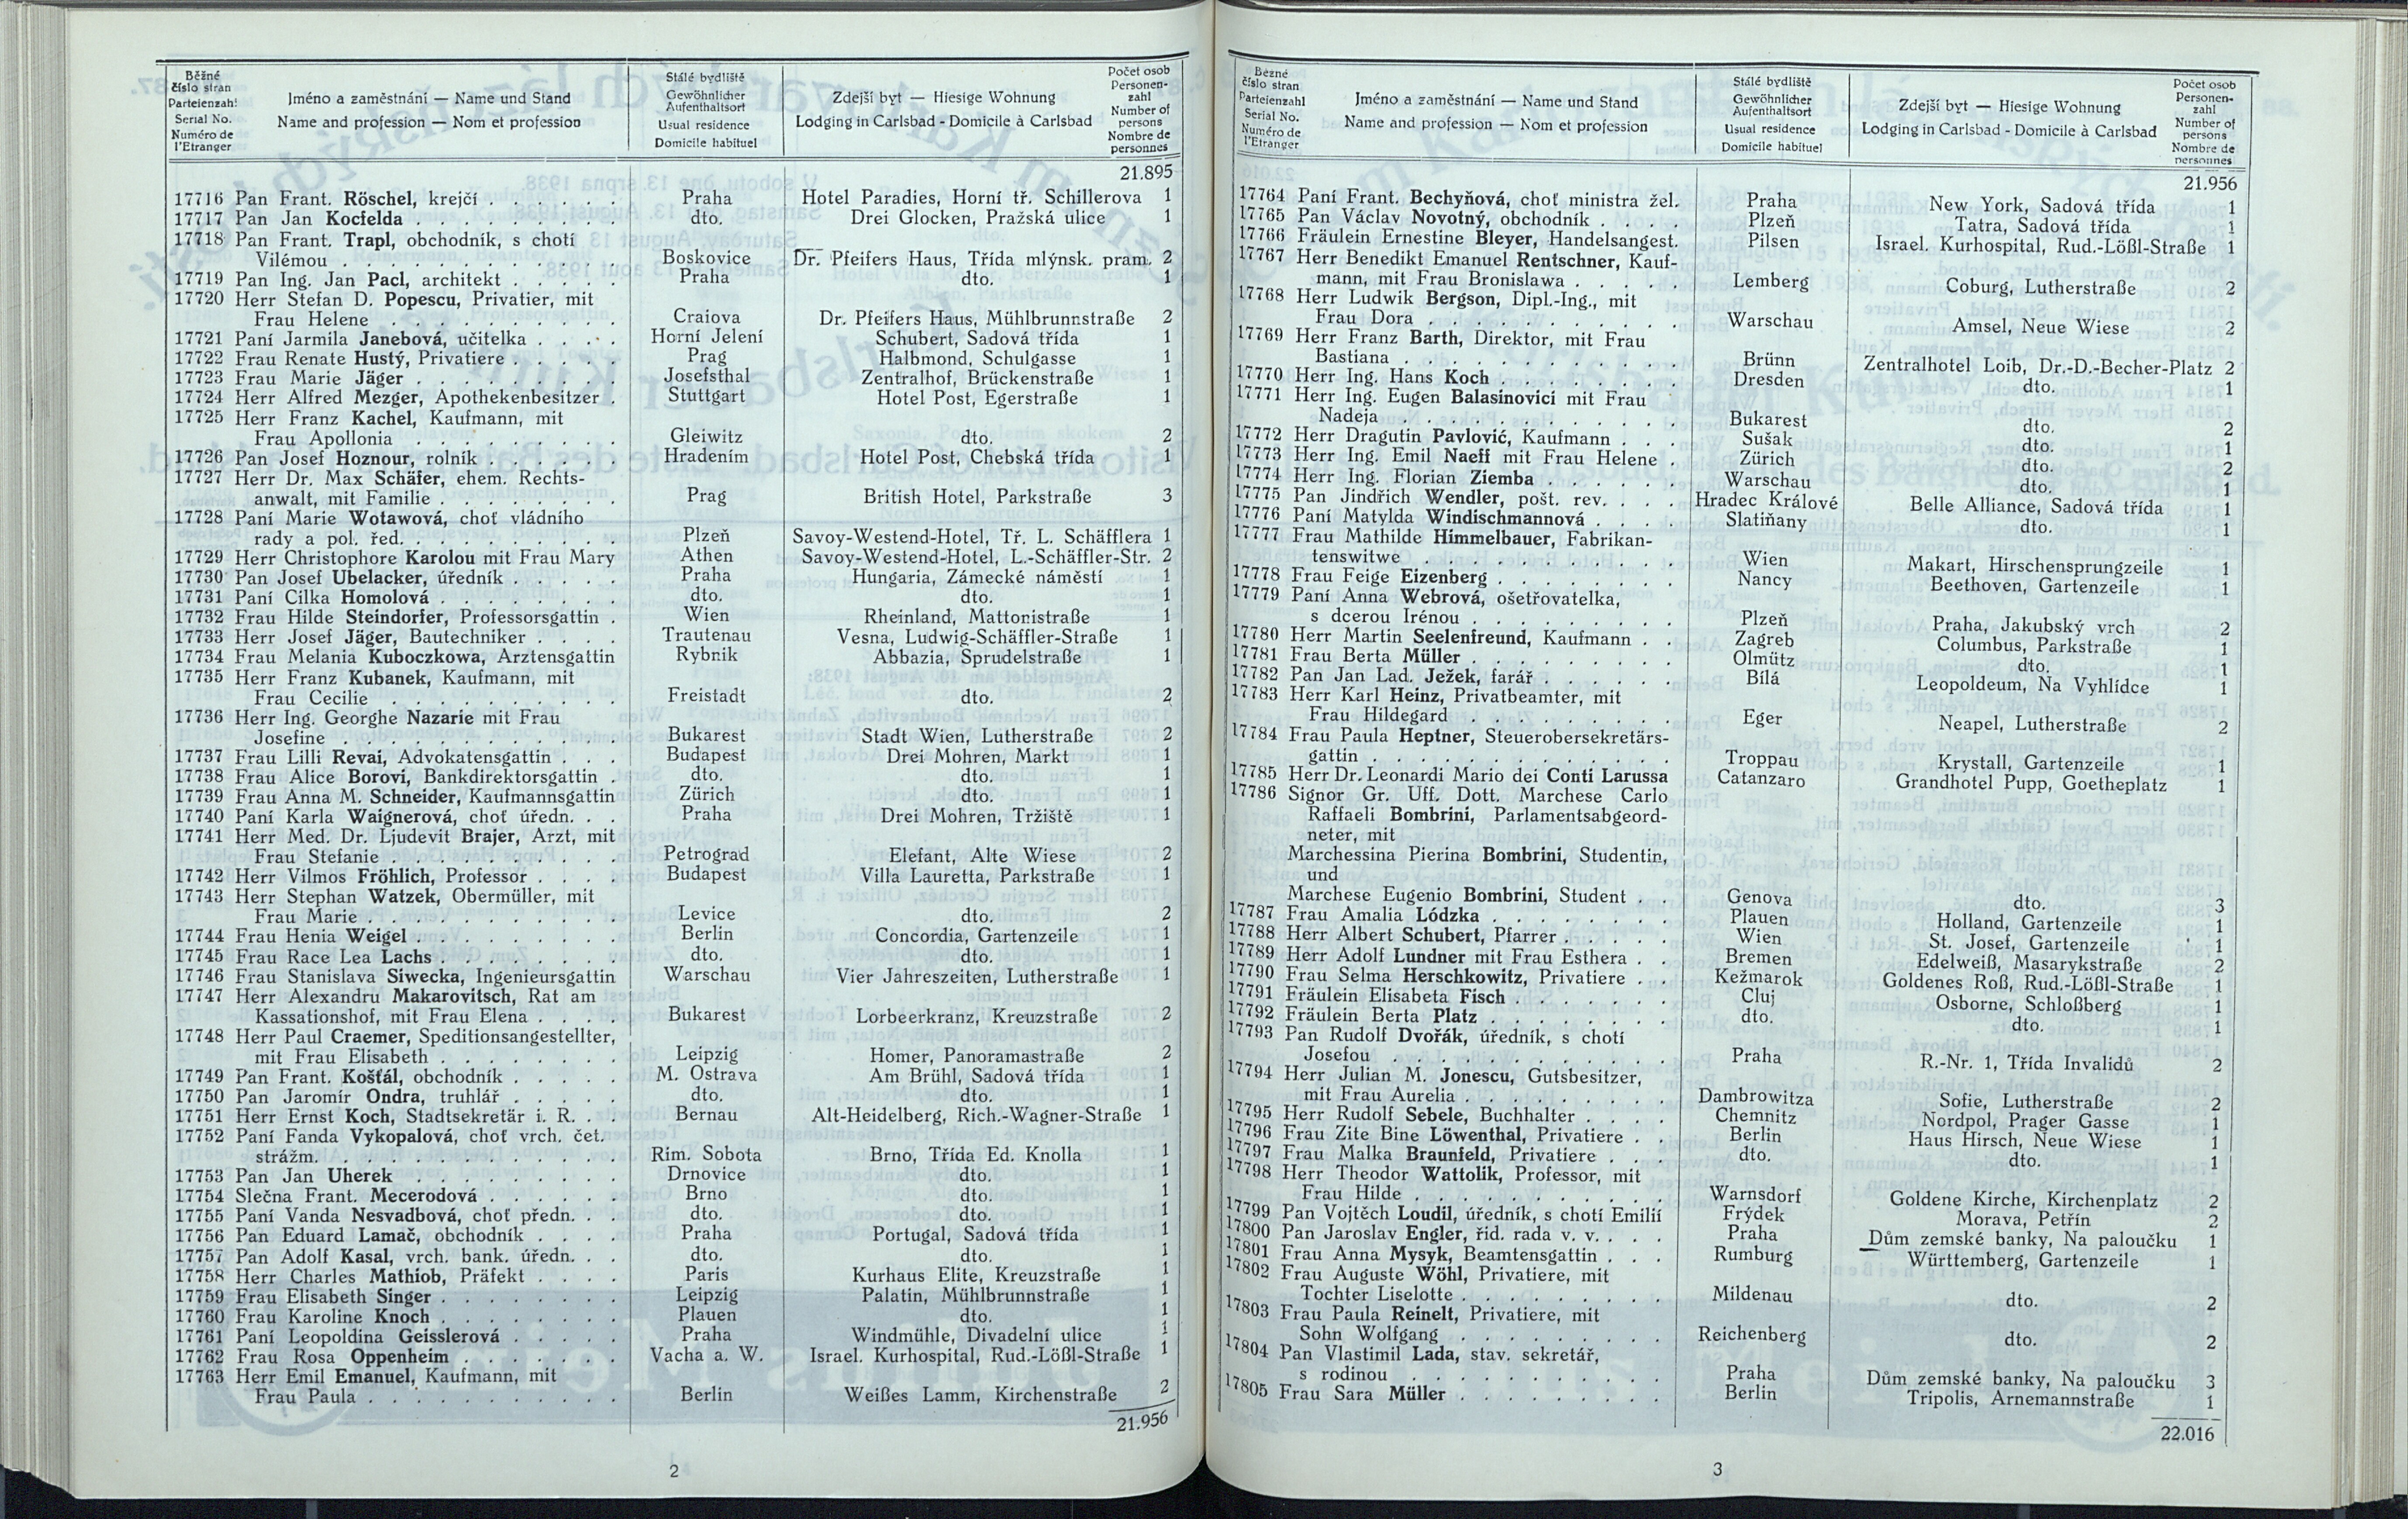 Běžné číslo stran Parteienzahl Serial No. Numéro de l'Etranger
Jméno a zaměstnání — Name und Stand
Name and profession — Nom et profession
Stálé bydliště Gewöhnlicher Aufenthaltsort Usual residence Domicile habituel
Zdejší byt — Hiesige Wohnung
Lodging in Carlsbad - Domicile à Carlsbad
Počet osob Personen- zahl Number of persons Nombre de personnes
21.895
17716 Pan Frant. Röschel, krejčí . Praha Hotel Paradies, Horní tř. Schillerova 1
17717 Pan Jan Kocfelda . dto. Drei Glocken, Pražská ulice 1
17718 Pan Frant. Trapl, obchodník, s chotí
Vilémou . Boskovice Dr. Pfeifers Haus, Třída mlýnsk. pram. 2
17719 Pan Ing. Jan Pacl, architekt . Praha dto. 1
17720 Herr Stefan D. Popescu, Privatier, mit
Frau Helene . Craiova Dr. Pfeifers Haus, Mühlbrunnstraße 2
17721 Paní Jarmila Janebová, učitelka . Horní Jelení Schubert, Sadová třída 1
17722 Frau Renate Hustý, Privatiere . Prag Halbmond, Schulgasse 1
17723 Frau Marie Jäger . Josefsthal Zentralhof, Brückenstraße 1
17724 Herr Alfred Mezger, Apothekenbesitzer . Stuttgart Hotel Post, Egerstraße 1
17725 Herr Franz Kachel, Kaufmann, mit
Frau Apollonia . Gleiwitz dto. 2
17726 Pan Josef Hoznour, rolník . Hradením Hotel Post, Chebská třída 1
17727 Herr Dr. Max Schäfer, ehem. Rechts-
anwalt, mit Familie . Prag British Hotel, Parkstraße 3
17728 Paní Marie Wotawová, choť vládního
rady a pol. řed. . Plzeň Savoy-Westend-Hotel, Tř. L. Schäfflera 1
17729 Herr Christophore Karolou mit Frau Mary Athen Savoy-Westend-Hotel, L.-Schäffler-Str. 2
17730 Pan Josef Ubelacker, úředník . Praha Hungaria, Zámecké náměstí 1
17731 Paní Cilka Homolová . dto. dto. 1
17732 Frau Hilde Steindorfer, Professorsgattin . Wien Rheinland, Mattonistraße 1
17733 Herr Josef Jäger, Bautechniker . Trautenau Vesna, Ludwig-Schäffler-Straße 1
17734 Frau Melania Kuboczkowa, Arztensgattin Rybnik Abbazia, Sprudelstraße 1
17735 Herr Franz Kubanek, Kaufmann, mit
Frau Cecilie . Freistadt dto. 2
17736 Herr Ing. Georghe Nazarie mit Frau
Josefine . Bukarest Stadt Wien, Lutherstraße 2
17737 Frau Lilli Revai, Advokatensgattin . Budapest Drei Mohren, Markt 1
17738 Frau Alice Borovi, Bankdirektorsgattin . dto. dto. 1
17739 Frau Anna M. Schneider, Kaufmannsgattin Zürich dto. 1
17740 Paní Karla Waignerová, choť úředn. . Praha Drei Mohren, Tržiště 1
17741 Herr Med. Dr. Ljudevit Brajer, Arzt, mit
Frau Stefanie . Petrograd Elefant, Alte Wiese 2
17742 Herr Vilmos Fröhlich, Professor . Budapest Villa Lauretta, Parkstraße 1
17743 Herr Stephan Watzek, Obermüller, mit
Frau Marie . Levice dto. 2
17744 Frau Henia Weigel . Berlin Concordia, Gartenzeile 1
17745 Frau Race Lea Lachs . dto. dto. 1
17746 Frau Stanislava Siwecka, Ingenieursgattin Warschau Vier Jahreszeiten, Lutherstraße 1
17747 Herr Alexandru Makarovitsch, Rat am
Kassationshof, mit Frau Elena . Bukarest Lorbeerkranz, Kreuzstraße 2
17748 Herr Paul Craemer, Speditionsangestellter,
mit Frau Elisabeth . Leipzig Homer, Panoramastraße 2
17749 Pan Frant. Košťál, obchodník . M. Ostrava Am Brühl, Sadová třída 1
17750 Pan Jaromír Ondra, truhlář . dto. dto. 1
17751 Herr Ernst Koch, Stadtsekretär i. R. . Bernau Alt-Heidelberg, Rich.-Wagner-Straße 1
17752 Paní Fanda Vykopalová, choť vrch. čet.
strážm. . Rim. Sobota Brno, Třída Ed. Knolla 1
17753 Pan Jan Uherek . Drnovice dto. 1
17754 Slečna Frant. Mecerodová . Brno dto. 1
17755 Paní Vanda Nesvadbová, choť předn. . dto. dto. 1
17756 Pan Eduard Lamač, obchodník . Praha Portugal, Sadová třída 1
17757 Pan Adolf Kasal, vrch. bank. úředn. . dto. dto. 1
17758 Herr Charles Mathiob, Präfekt . Paris Kurhaus Elite, Kreuzstraße 1
17759 Frau Elisabeth Singer . Leipzig Palatin, Mühlbrunnstraße 1
17760 Frau Karoline Knoch . Plauen dto. 1
17761 Paní Leopoldina Geisslerová . Praha Windmühle, Divadelní ulice 1
17762 Frau Rosa Oppenheim . Vacha a. W. Israel. Kurhospital, Rud.-Lößl-Straße 1
17763 Herr Emil Emanuel, Kaufmann, mit
Frau Paula . Berlin Weißes Lamm, Kirchenstraße 2
21.956
2
Běžné číslo stran Parteienzahl Serial No. Numéro de l'Etranger
Jméno a zaměstnání — Name und Stand
Name and profession — Nom et profession
Stálé bydliště Gewöhnlicher Aufenthaltsort Usual residence Domicile habituel
Zdejší byt — Hiesige Wohnung
Lodging in Carlsbad - Domicile à Carlsbad
Počet osob Personen- zahl Number of persons Nombre de personnes
21.956
17764 Paní Frant. Bechyňová, choť ministra žel. Praha New York, Sadová třída 1
17765 Pan Václav Novotný, obchodník . Plzeň Tatra, Sadová třída 1
17766 Fräulein Ernestine Bleyer, Handelsangest. Pilsen Israel. Kurhospital, Rud.-Lößl-Straße 1
17767 Herr Benedikt Emanuel Rentschner, Kauf-
mann, mit Frau Bronislawa . Lemberg Coburg, Lutherstraße 2
17768 Herr Ludwik Bergson, Dipl.-Ing., mit
Frau Dora . Warschau Amsel, Neue Wiese 2
17769 Herr Franz Barth, Direktor, mit Frau
Bastiana . Brünn Zentralhotel Loib, Dr.-D.-Becher-Platz 2
17770 Herr Ing. Hans Koch . Dresden dto. 1
17771 Herr Ing. Eugen Balasinovici mit Frau
Nadeja . Bukarest dto. 2
17772 Herr Dragutin Pavlović, Kaufmann . Sušak dto. 1
17773 Herr Ing. Emil Naeff mit Frau Helene . Zürich dto. 2
17774 Herr Ing. Florian Ziemba . Warschau dto. 1
17775 Pan Jindřich Wendler, pošt. rev. . Hradec Králové Belle Alliance, Sadová třída 1
17776 Paní Matylda Windischmannová . Slatiňany dto. 1
17777 Frau Mathilde Himmelbauer, Fabrikan-
tenswitwe . Wien Makart, Hirschensprungzeile 1
17778 Frau Feige Eizenberg . Nancy Beethoven, Gartenzeile 1
17779 Paní Anna Webrová, ošetřovatelka,
s dcerou Irénou . Plzeň Praha, Jakubský vrch 2
17780 Herr Martin Seelenfreund, Kaufmann . Zagreb Columbus, Parkstraße 1
17781 Frau Berta Müller . Olmütz dto. 1
17782 Pan Jan Lad. Ježek, farář . Bílá Leopoldeum, Na Vyhlídce 1
17783 Herr Karl Heinz, Privatbeamter, mit
Frau Hildegard . Eger Neapel, Lutherstraße 2
17784 Frau Paula Heptner, Steuerobersekretärs-
gattin . Troppau Krystall, Gartenzeile 1
17785 Herr Dr. Leonardi Mario dei Conti Larussa Catanzaro Grandhotel Pupp, Goetheplatz 1
17786 Signor Gr. Uff. Dott. Marchese Carlo
Raffaeli Bombrini, Parlamentsabgeord-
neter, mit
Marchessina Pierina Bombrini, Studentin,
und
Marchese Eugenio Bombrini, Student . Genova dto. 3
17787 Frau Amalia Lódzka . Plauen Holland, Gartenzeile 1
17788 Herr Albert Schubert, Pfarrer . Wien St. Josef, Gartenzeile 1
17789 Herr Adolf Lundner mit Frau Esthera . Bremen Edelweiß, Masarykstraße 2
17790 Frau Selma Herschkowitz, Privatiere . Kežmarok Goldenes Roß, Rud.-Lößl-Straße 1
17791 Fräulein Elisabeta Fisch . Cluj Osborne, Schloßberg 1
17792 Fräulein Berta Platz . dto. dto. 1
17793 Pan Rudolf Dvořák, úředník, s chotí
Josefou . Praha R.-Nr. 1, Třída Invalidů 2
17794 Herr Julian M. Jonescu, Gutsbesitzer,
mit Frau Aurelia . Dambrowitza Sofie, Lutherstraße 2
17795 Herr Rudolf Sebele, Buchhalter . Chemnitz Nordpol, Prager Gasse 1
17796 Frau Zite Bine Löwenthal, Privatiere . Berlin Haus Hirsch, Neue Wiese 1
17797 Frau Malka Braunfeld, Privatiere . dto. dto. 1
17798 Herr Theodor Wattolik, Professor, mit
Frau Hilde . Warnsdorf Goldene Kirche, Kirchenplatz 2
17799 Pan Vojtěch Loudil, úředník, s chotí Emilií Frýdek Morava, Petřín 2
17800 Pan Jaroslav Engler, říd. rada v. v. . Praha Dům zemské banky, Na paloučku 1
17801 Frau Anna Mysyk, Beamtensgattin . Rumburg Württemberg, Gartenzeile 1
17802 Frau Auguste Wöhl, Privatiere, mit
Tochter Liselotte . Mildenau dto. 2
17803 Frau Paula Reinelt, Privatiere, mit
Sohn Wolfgang . Reichenberg dto. 2
17804 Pan Vlastimil Lada, stav. sekretář,
s rodinou . Praha Dům zemské banky, Na paloučku 3
17805 Frau Sara Müller . Berlin Tripolis, Arnemannstraße 1
22.016
3